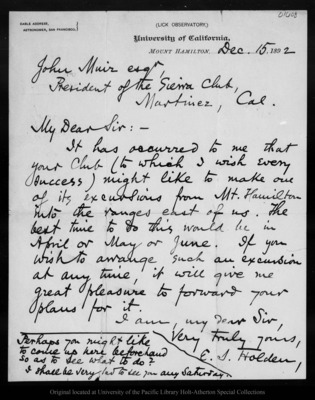 CABLE ADDRESS,
ASTRONOMER, SAN FRANCISCO.
(LICK OBSERVATORY)
University of California,
MOUNT HAMILTON, Dec. 15. 1892
John Muir esqr,
President of the Sierra Club,
Martinez, Cal.
My Dear Sir:—
It has occurred to me that
your Club (to which I wish every
success) might like to make one
of its excursions from Mt. Hamilton
into the ranges east of us. The
best time to do this would be in
April or May or June. If you
wish to arrange such an excursion
at any time, it will give me
great pleasure to forward your
plans for it.
I am, my dear Sir,
Very truly yours,
E. S. Holden,
Perhaps you might like
to come up here beforehand
so as to see what to do?
I shall be very glad to see you any Saturday.
Original located at University of the Pacific Library Holt-Atherton Special Collections